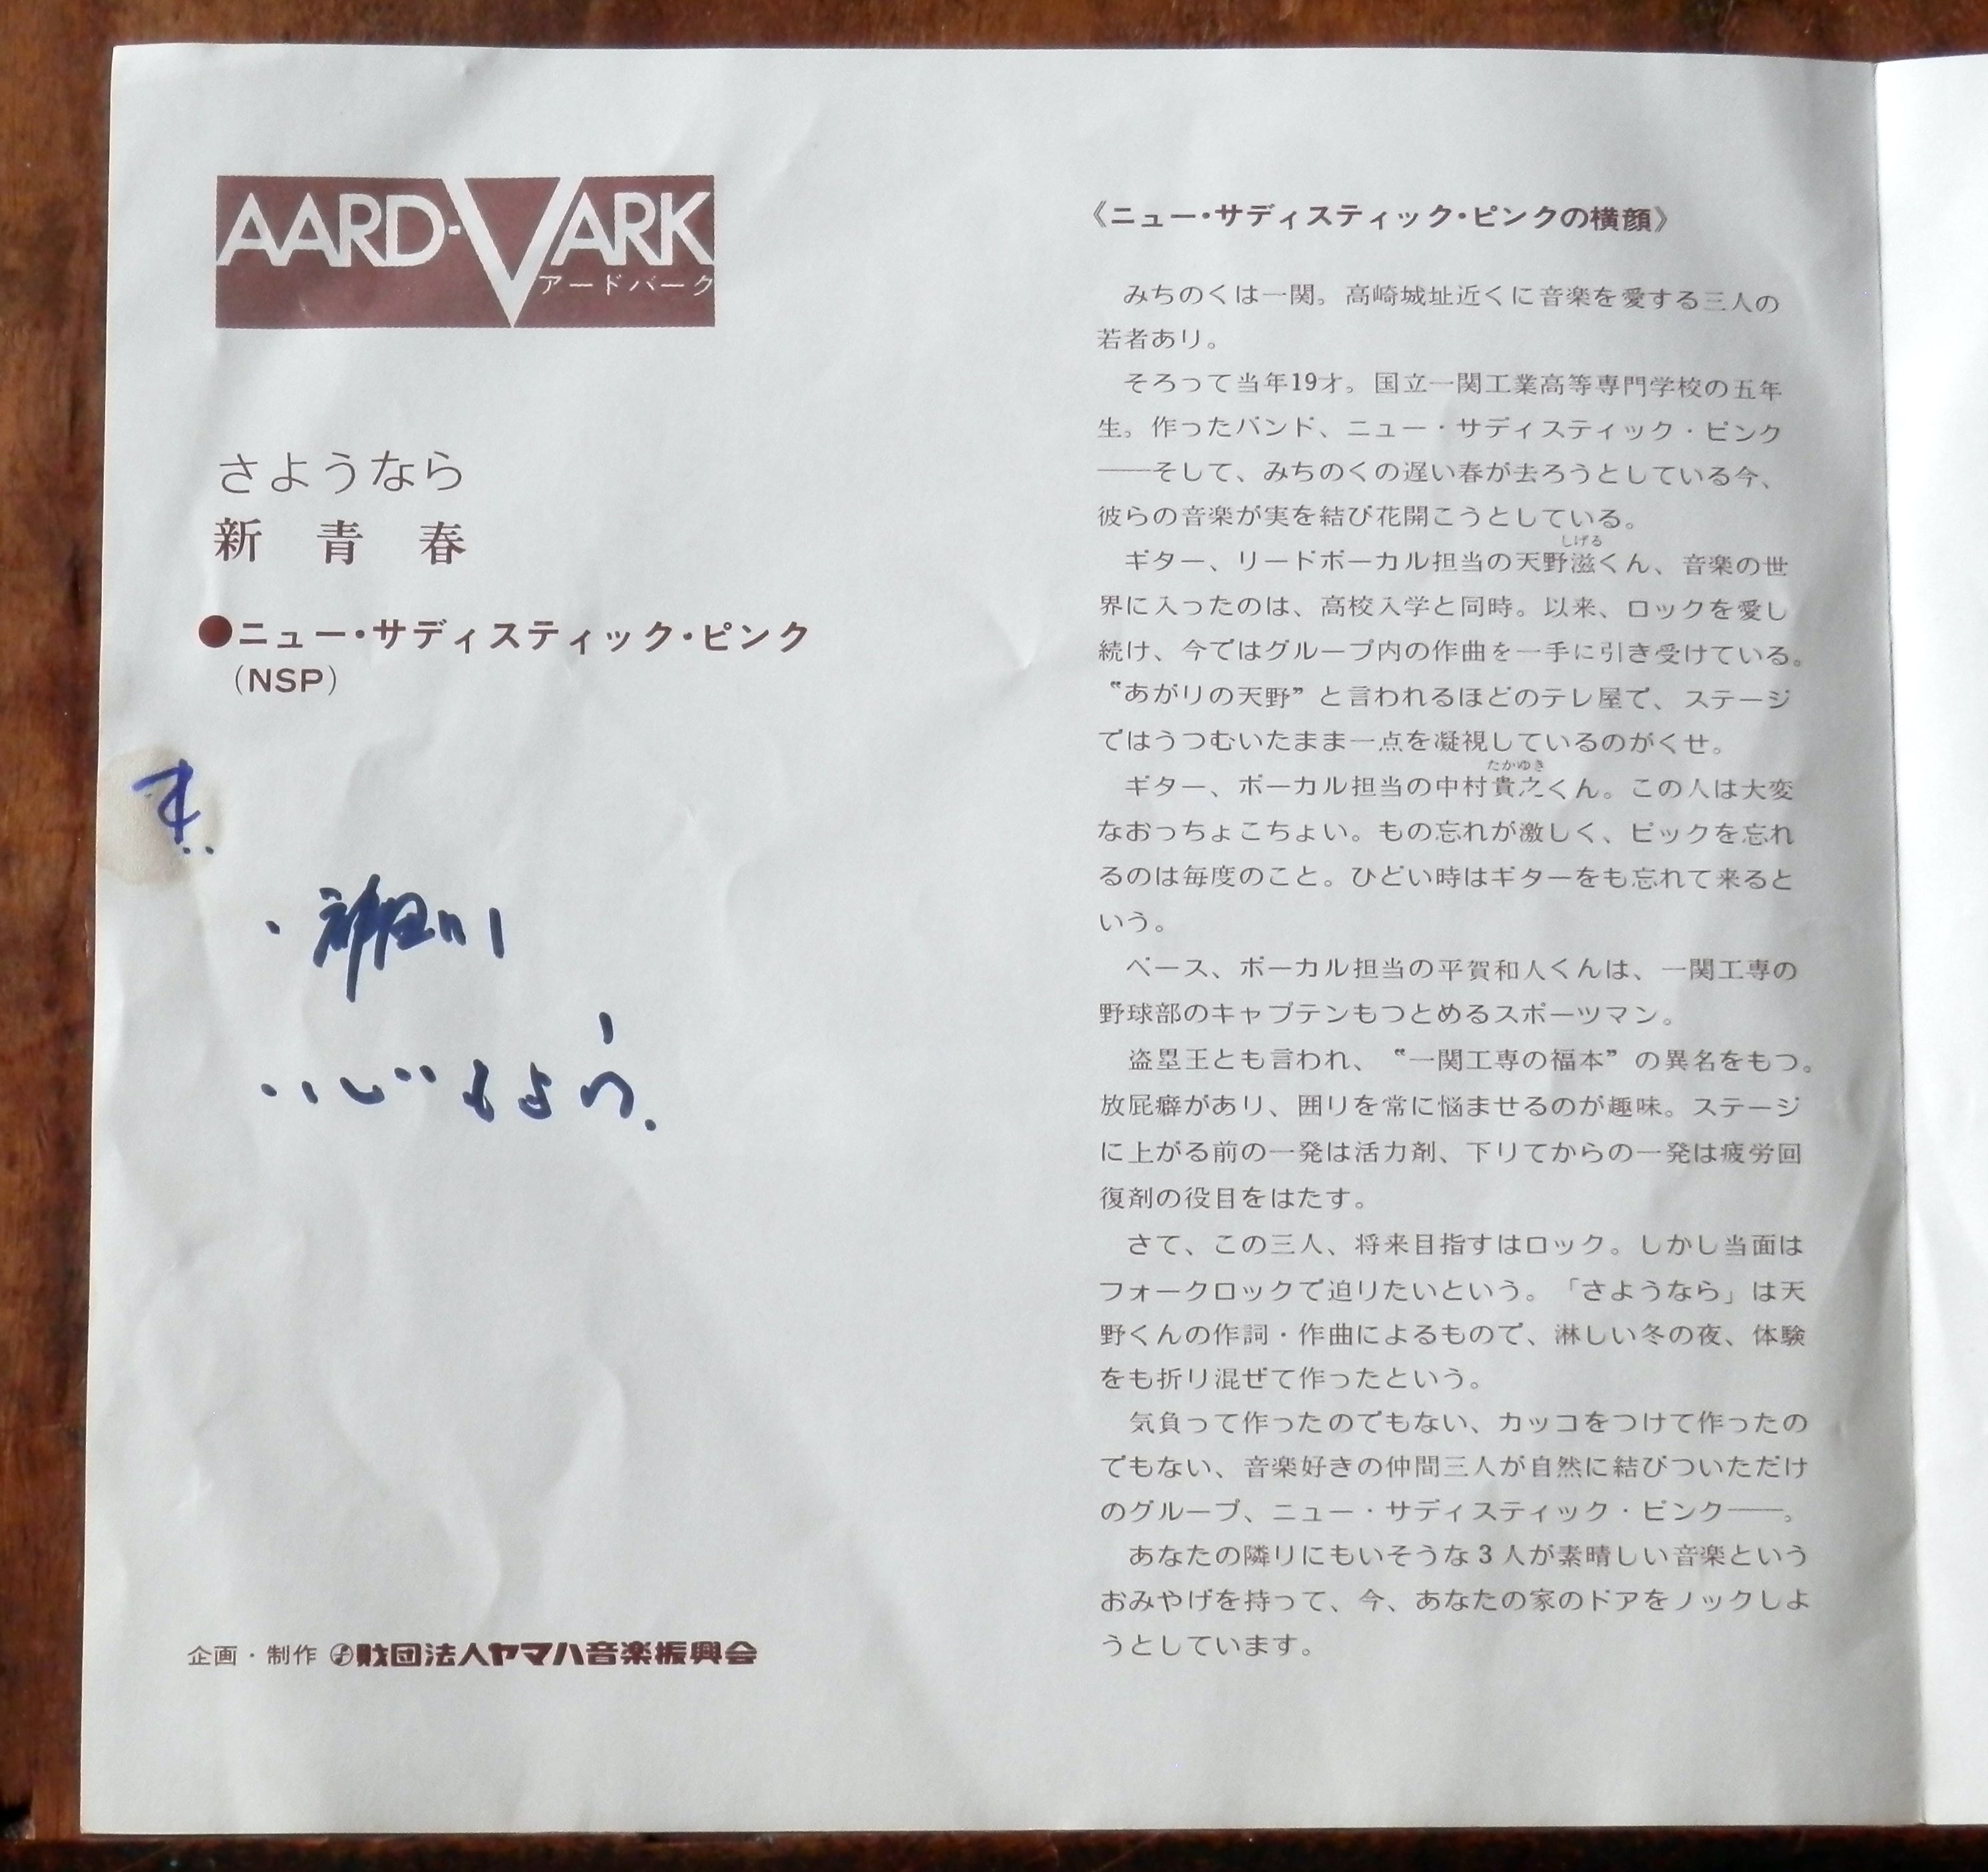 AARD-VARK
アードバーク
さようなら
新 青 春
●ニュー・サディスティック・ピンク
(NSP)
・神田川
・心もよう.
企画・制作 財団法人ヤマハ音楽振興会
《ニュー・サディスティック・ピンクの横顔》
みちのくは一関。高崎城址近くに音楽を愛する三人の
若者あり。
そろって当年19才。国立一関工業高等専門学校の五年
生。作ったバンド、ニュー・サディスティック・ピンク
――そして、みちのくの遅い春が去ろうとしている今、
彼らの音楽が実を結び花開こうとしている。
しげる
ギター、リードボーカル担当の天野滋くん、音楽の世
界に入ったのは、高校入学と同時。以来、ロックを愛し
続け、今ではグループ内の作曲を一手に引き受けている。
〝あがりの天野〟と言われるほどのテレ屋で、ステージ
ではうつむいたまま一点を凝視しているのがくせ。
たかゆき
ギター、ボーカル担当の中村貴之くん。この人は大変
なおっちょこちょい。もの忘れが激しく、ピックを忘れ
るのは毎度のこと。ひどい時はギターをも忘れて来ると
いう。
ベース、ボーカル担当の平賀和人くんは、一関工専の
野球部のキャプテンもつとめるスポーツマン。
盗塁王とも言われ、〝一関工専の福本〟の異名をもつ。
放屁癖があり、囲りを常に悩ませるのが趣味。ステージ
に上がる前の一発は活力剤、下りてからの一発は疲労回
復剤の役目をはたす。
さて、この三人、将来目指すはロック。しかし当面は
フォークロックで迫りたいという。「さようなら」は天
野くんの作詞・作曲によるもので、淋しい冬の夜、体験
をも折り混ぜて作ったという。
気負って作ったのでもない、カッコをつけて作ったの
でもない、音楽好きの仲間三人が自然に結びついただけ
のグループ、ニュー・サディスティック・ピンク――。
あなたの隣りにもいそうな3人が素晴しい音楽という
おみやげを持って、今、あなたの家のドアをノックしよ
うとしています。